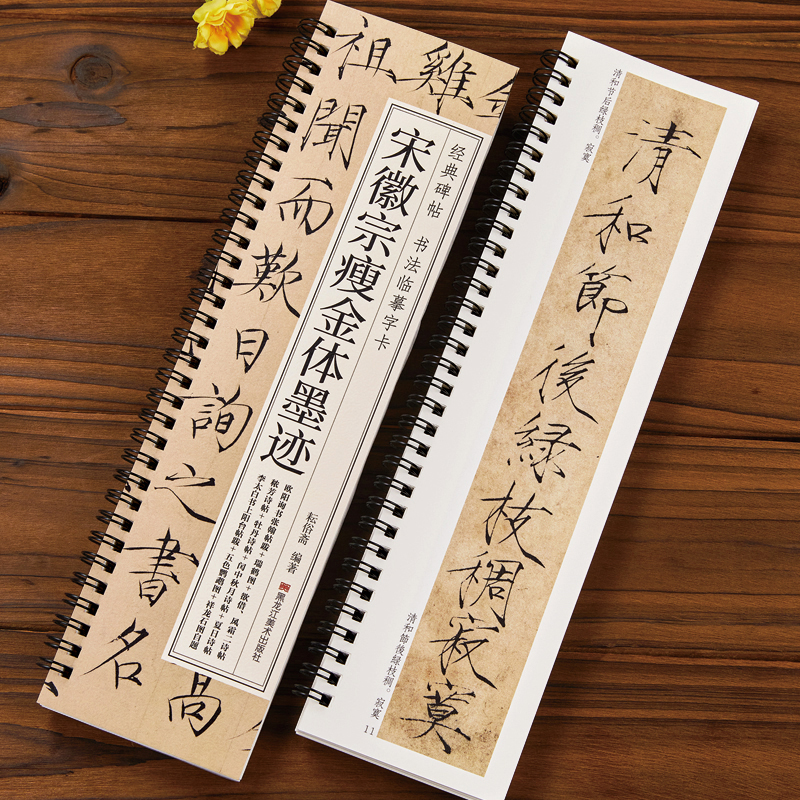 雞
祖聞而歎日詢之書名
高
经典碑帖 书法临摹字卡
宋徽宗瘦金体墨迹
欧阳询书张翰帖跋+瑞鹤图+欲借、风霜二诗帖
秾芳诗帖+牡丹诗帖+闰中秋月诗帖+夏日诗帖
李太白书上阳台帖跋+五色鹦鹉图+祥龙石图自题
耘俗斋 编著
黑龙江美术出版社
清和节后绿枝稠。寂寞
清和節後緑枝稠寂寞
清和節後緑枝稠。寂寞
11